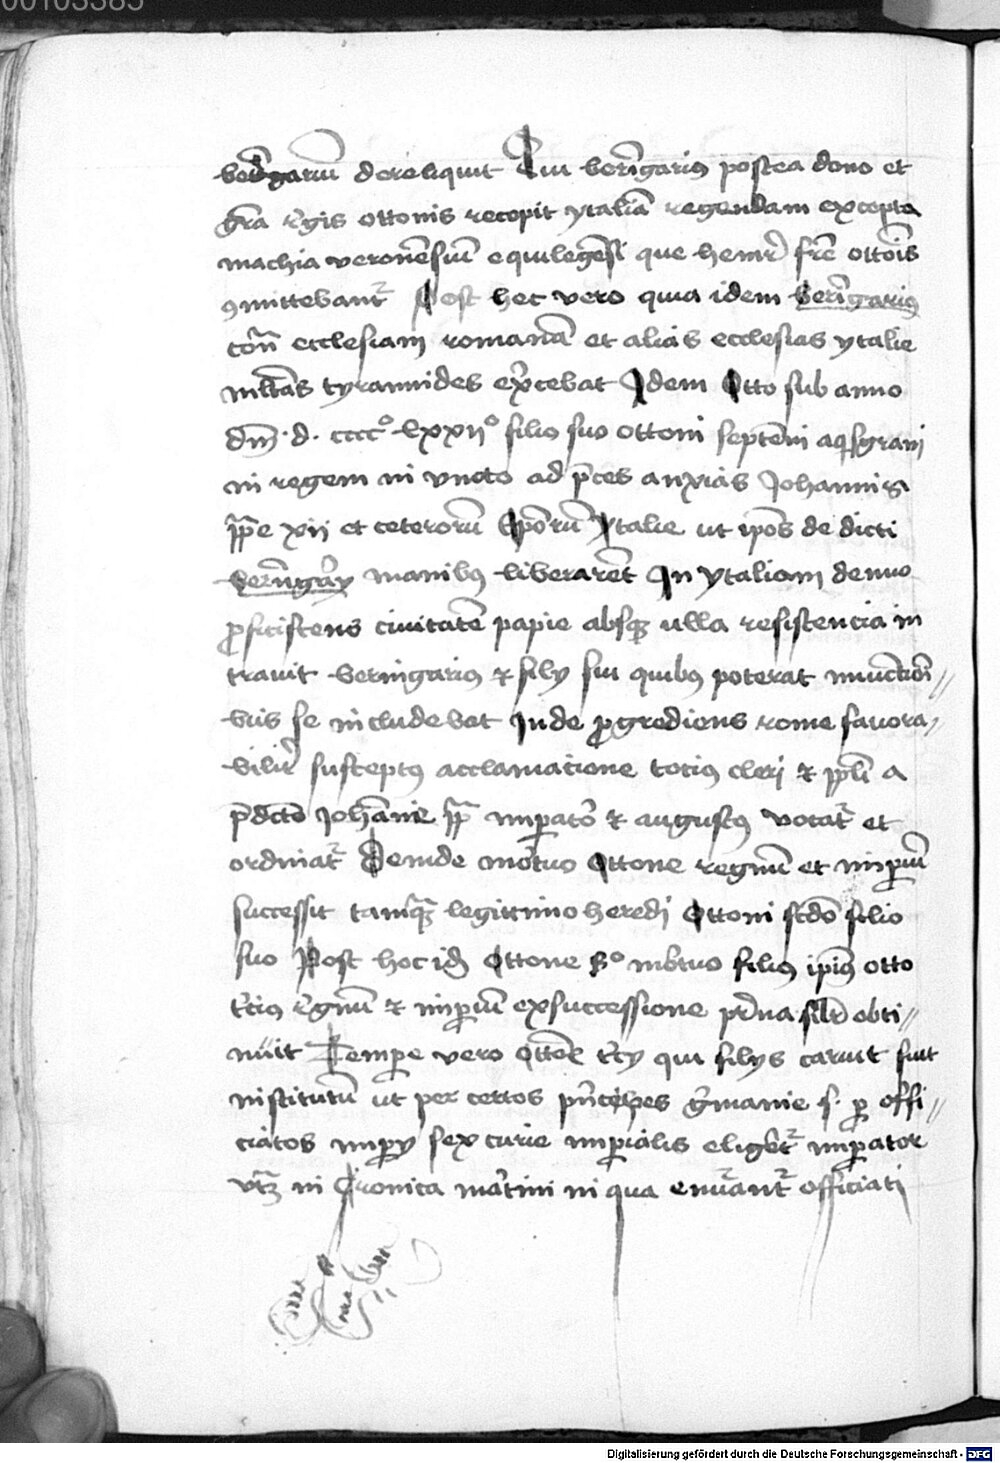 00103385
beringariū dereliquit Qui beringarius postea dono et
grā regis ottonis recepit ytaliā regendam excepta
machia veronēsiū equilegēsi que henrico frē ottōis
9mittebant᷑ Post hec vero quia idem beringarius
cōn̄ ecclesiam romanā et alias ecclesias ytalie
mltās tyrannides ex̄cebat Idem Otto sub anno
dn̄i · d · cccc° lxxii° filio suo ottoni septēni aqsgrani
in regem in vncto ad p̄ces anxias Johannis
pp̄e xii et ceterorū Ep̄orū ytalie ut ip̄os de dicti
beringary manibus liberarēt In ytaliam denuo
proficiscens ciuitatē papie absq ulla resistencia in
trauit beringarius & fily sui quibus poterat municioni //
bus se includebat Inde progrediens rome fauora //
bilit᷑ susceptus acclamacione totius cleri & pp̄li a
p̄dcto Johāne pp̄ imperator & augustus vocat᷑ et
ordinat᷑ Deinde mortuo Ottone regnū et imperiū
successit tamq legittimo heredi Ottoni scdō filio
suo Post hoc id Ottone 2° mortuo filius ipīus otto
t᷑cius Regnū & imperiū ex successione pr̄na silr obti //
nuit Tempore vero Ottōe t᷑cy qui filys caruit fuit
institutū ut per certos prīcipes Germanie s. per offi //
ciatos impery sex curie imperialis eliget᷑ imperator
vt in Cronica martini in qua enūant᷑ officiati
Digitalisierung gefördert durch die Deutsche Forschungsgemeinschaft - DFG